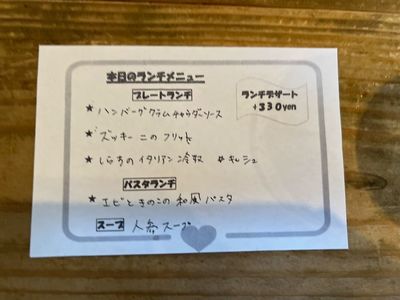 本日のランチメニュー
プレートランチ
ランチデザート
+330yen
★ ハンバーグクラムチャウダーソース
★ ズッキーニのフリット
★ しらすのイタリアン冷奴 ★キッシュ
パスタランチ
★ エビときのこの和風パスタ
スープ 人参スープ